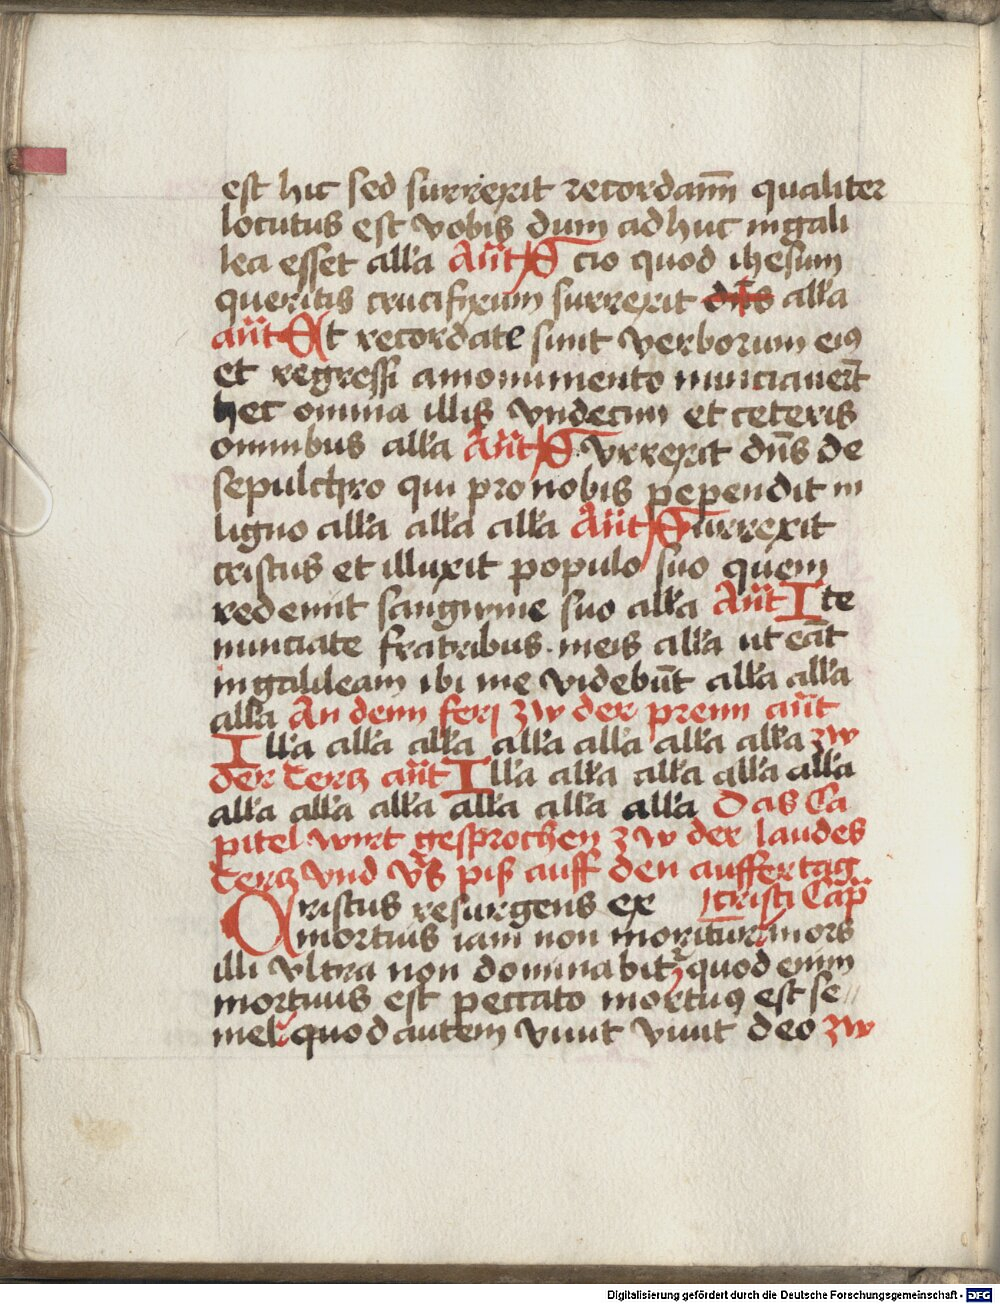 est hic sed surrexit recordam̄ qualiter
locutus est vobis dum adhuc in gali
lea esset alľa Añt S cio quod ihesum
queritis crucifixum surrexit dñs alľa
añt Et recordate sunt verborum eiꝰ
et regressi a monumento nunciauert̄
hec omnia illis vndecim et ceteris
omnibus alľa Añt S vrrexit dñs de
sepulchro qui pro nobis pependit in
ligno alľa alľa alľa Añt Surrexit
cristus et illuxit populo suo quem
redemit sanguine suo alľa Añt Ite
nunciate fratribus meis alľa ut eāt
in galileam ibi me videbūt alľa alľa
alľa An denn ferj zw der prenn añt
Alľa alľa alľa alľa alľa alľa alľa zw
der tercz añt Alľa alľa alľa alľa alľa
alľa alľa alľa alľa alľa alľa Das Ca
pitel wirt gesprochen zw der laudes
tercz vnd v̄s piß auff den auffertag
cristi Cap̄
Cristus resurgens ex
mortuis iam non moritur mors
illi vltra non dominabitᷣ quod enim
mortuus est peccato mortuꝰ est se//
mel quod autem viuit viuit deo zw
Digitalisierung gefördert durch die Deutsche Forschungsgemeinschaft - DFG